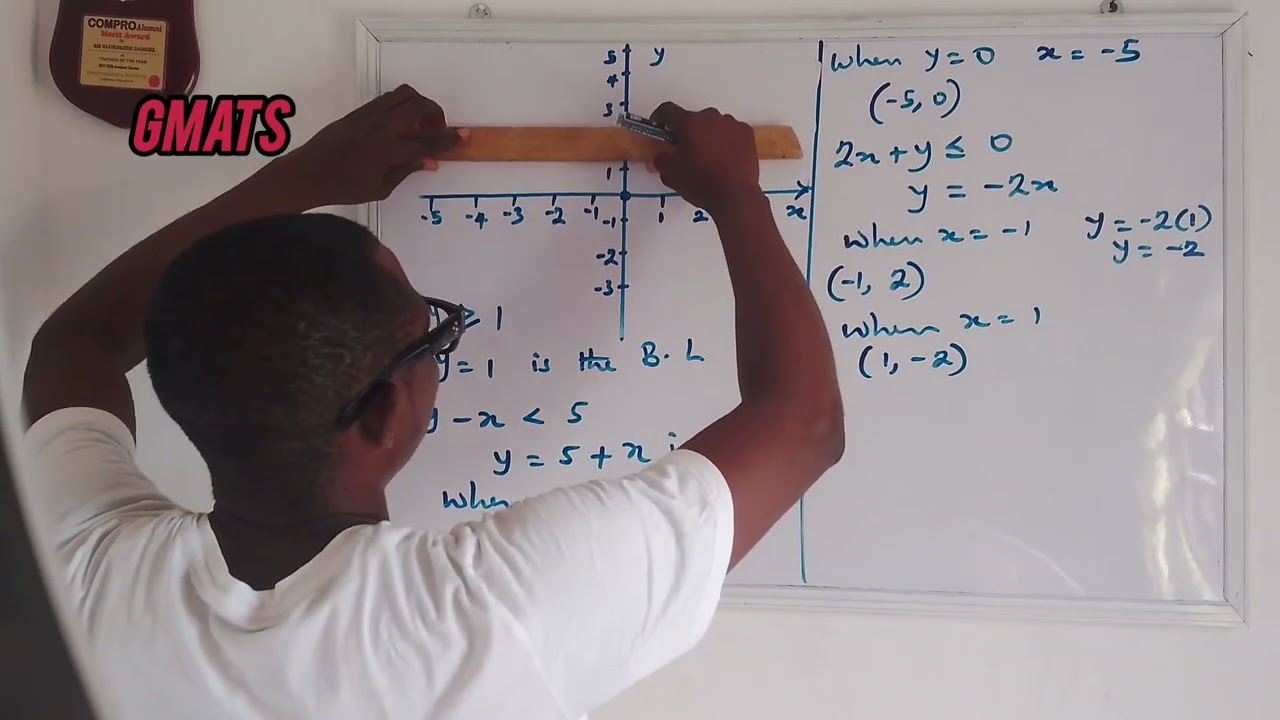 COMPRO Alumni
Merit Award
TEACHER OF THE YEAR
GMATS
5 y
4
3
1
-5 -4 -3 -2 -1 1 2 x
-1
-2
-3
y ≥ 1
y = 1 is the B.L
y - x < 5
y = 5 + x
when
when y = 0 x = -5
(-5, 0)
2x + y ≤ 0
y = -2x
when x = -1
(-1, 2)
when x = 1
(1, -2)
y = -2(1)
y = -2